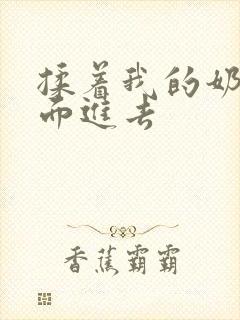 揉着我的奶
而进去
香蕉霸霸